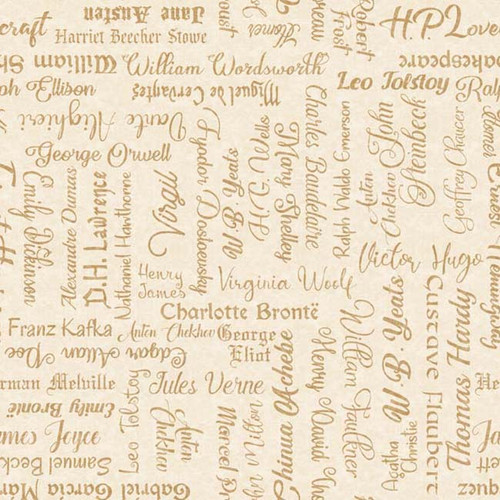 craft
Jane Austen
Harriet Beecher Stowe
oust
Homer
Robert
Frost
H.P. Love
William Sh
William Wordsworth
akespeare
Leo Tolstoy
ph Ellison
Miguel de Cervantes
Ral
Dante Alighieri
George Orwell
Fyodor Dostoevsky
W. B. Yeats
H.G. Wells
Mary Shelley
Charles Baudelaire
Ralph Waldo Emerson
Anton
Chekhov
John
Steinbeck
Geoffrey Chaucer
Homer
Emily Dickinson
Alexandre Dumas
D.H. Laurence
Nathaniel Hawthorne
Virgil
Henry
James
Virginia Woolf
Victor Hugo
Charlotte Brontë
Franz Kafka
Anton Chekhov
George
Eliot
Edgar Allan Poe
rman Melville
Jules Verne
He
Emily Brontë
mes Joyce
Leo Tolstoy
Anton
Chekhov
Marcel
Chinua Achebe
Henry David
William Faulkner
W. B. Yeats
Agatha
Christie
Gustave Flaubert
Thomas Hardy
Samuel Beck
ett
García Marquez
Gabriel
quez